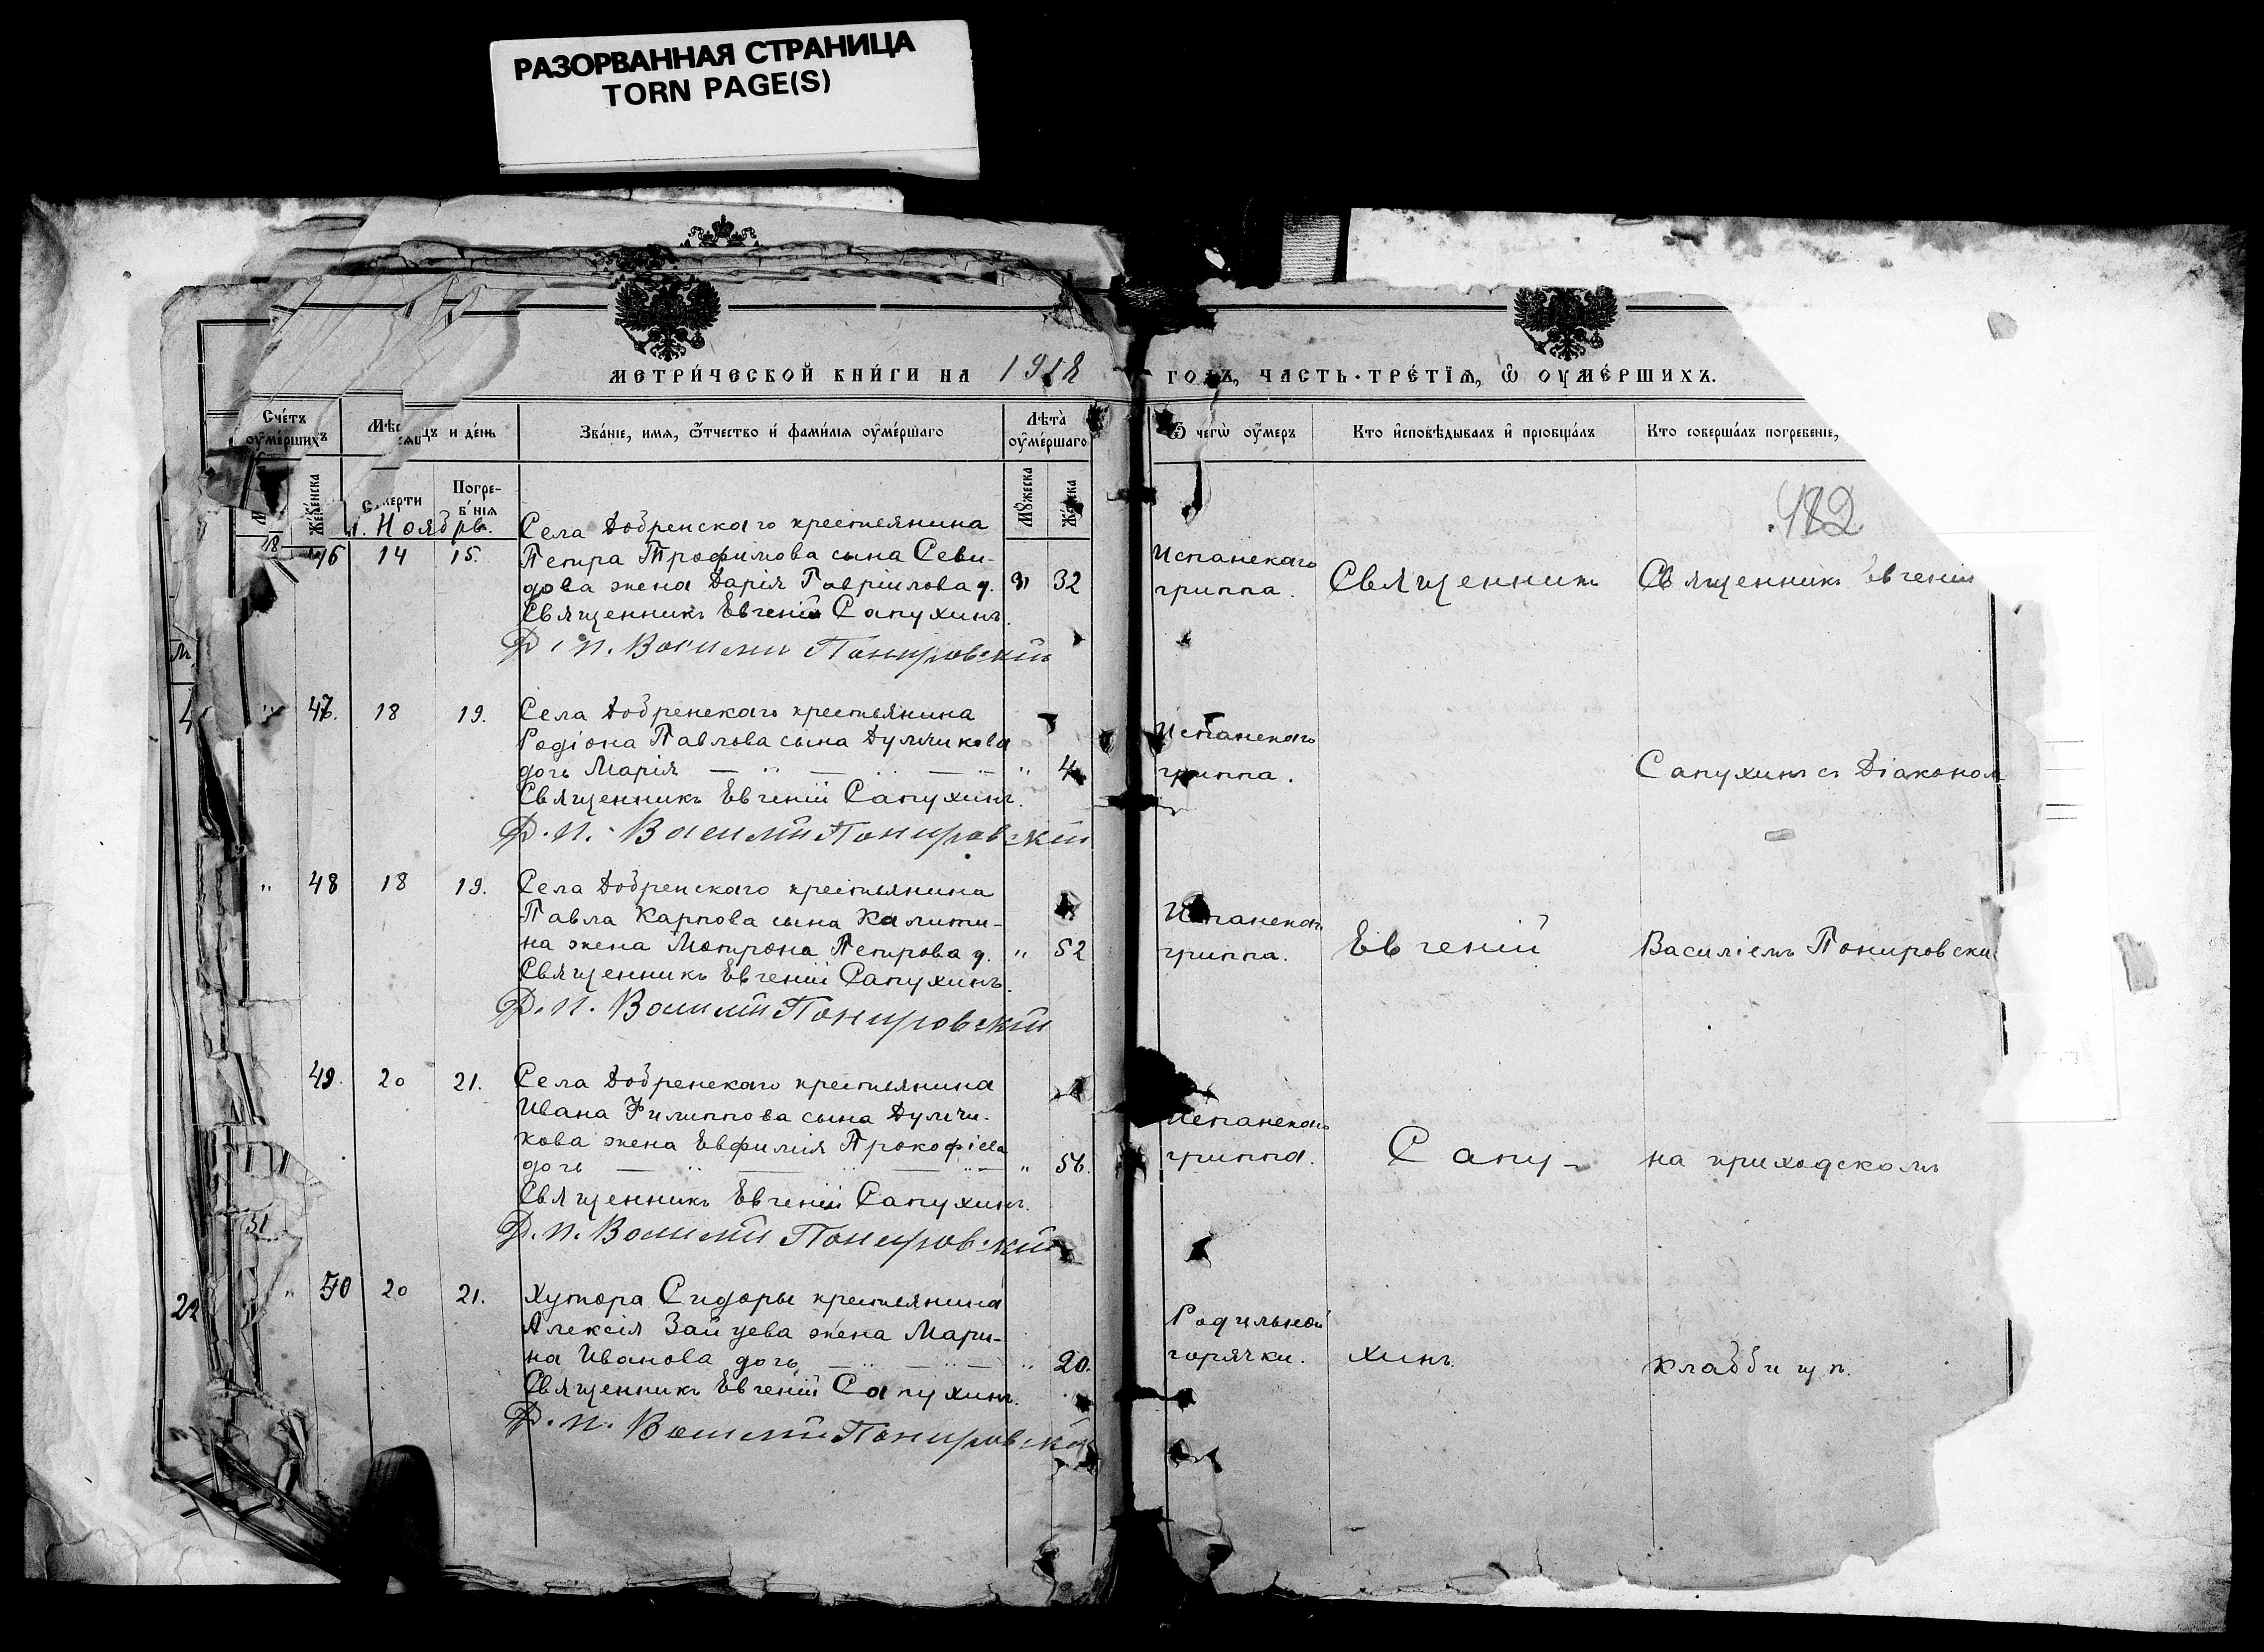 РАЗОРВАННАЯ СТРАНИЦА
TORN PAGE(S)
МЕТРИ́ЧЕСКОЙ КНИ́ГИ НА 1918 ГОДЪ, ЧАСТЬ ТРЕ́ТІѦ, Ѿ ОУМЕ́РШИХЪ.
Сче́тъ оуме́ршихъ
Мѣсяцъ и де́нь
Зва́ніе, имя, ѿтчество и́ фами́лія оуме́ршаго
Лѣта̀ оуме́ршаго
Ѿ чегѡ̀ оумеръ
Кто исповѣдывалъ и пріобща́лъ
Кто соверша́лъ погребеніе,
Женска
Смерти
Погребенія
Мꙋжеска
Женска
482
Ноябрь.
Села Добренскаго крестьянина
46 14 15. Петра Трофимова сына Севи-
дова жена Дарія Гавріилова д. 32
Священникъ Евгеній Сапухинъ.
Д. П. Василій Понировскій
Испанскаго
гриппа.
Священникъ
Священникъ Евгеній
47. 18 19. Села Добренскаго крестьянина
Родіона Павлова сына Думчикова
дочь Марія — " — " — " — " 4
Священникъ Евгеній Сапухинъ.
Д. П. Василій Понировскій
Испанскаго
гриппа.
Сапухинъ съ Діаконом
" 48 18 19. Села Добренскаго крестьянина
Павла Карпова сына Калити-
на жена Матрона Петрова д. " 52
Священникъ Евгеній Сапухинъ.
Д. П. Василій Понировскій
Испанскаго
гриппа.
Евгеній
Василіемъ Понировски
49. 20 21. Села Добренскаго крестьянина
Ивана Филиппова сына Думчи-
кова жена Евфимія Прокофіева
дочь — " — " — " — " 56.
Священникъ Евгеній Сапухинъ.
Д. П. Василій Понировскій
Испанскаго
гриппа.
Сапу-
на приходскомъ
" 50 20 21. Хутора Сидоры крестьянина
Алексія Зайцева жена Мари-
на Иванова дочь — " — " — " 20.
Священникъ Евгеній Сапухинъ.
Д. П. Василій Понировскій
Родильной
горячки.
хинъ.
кладбищѣ.